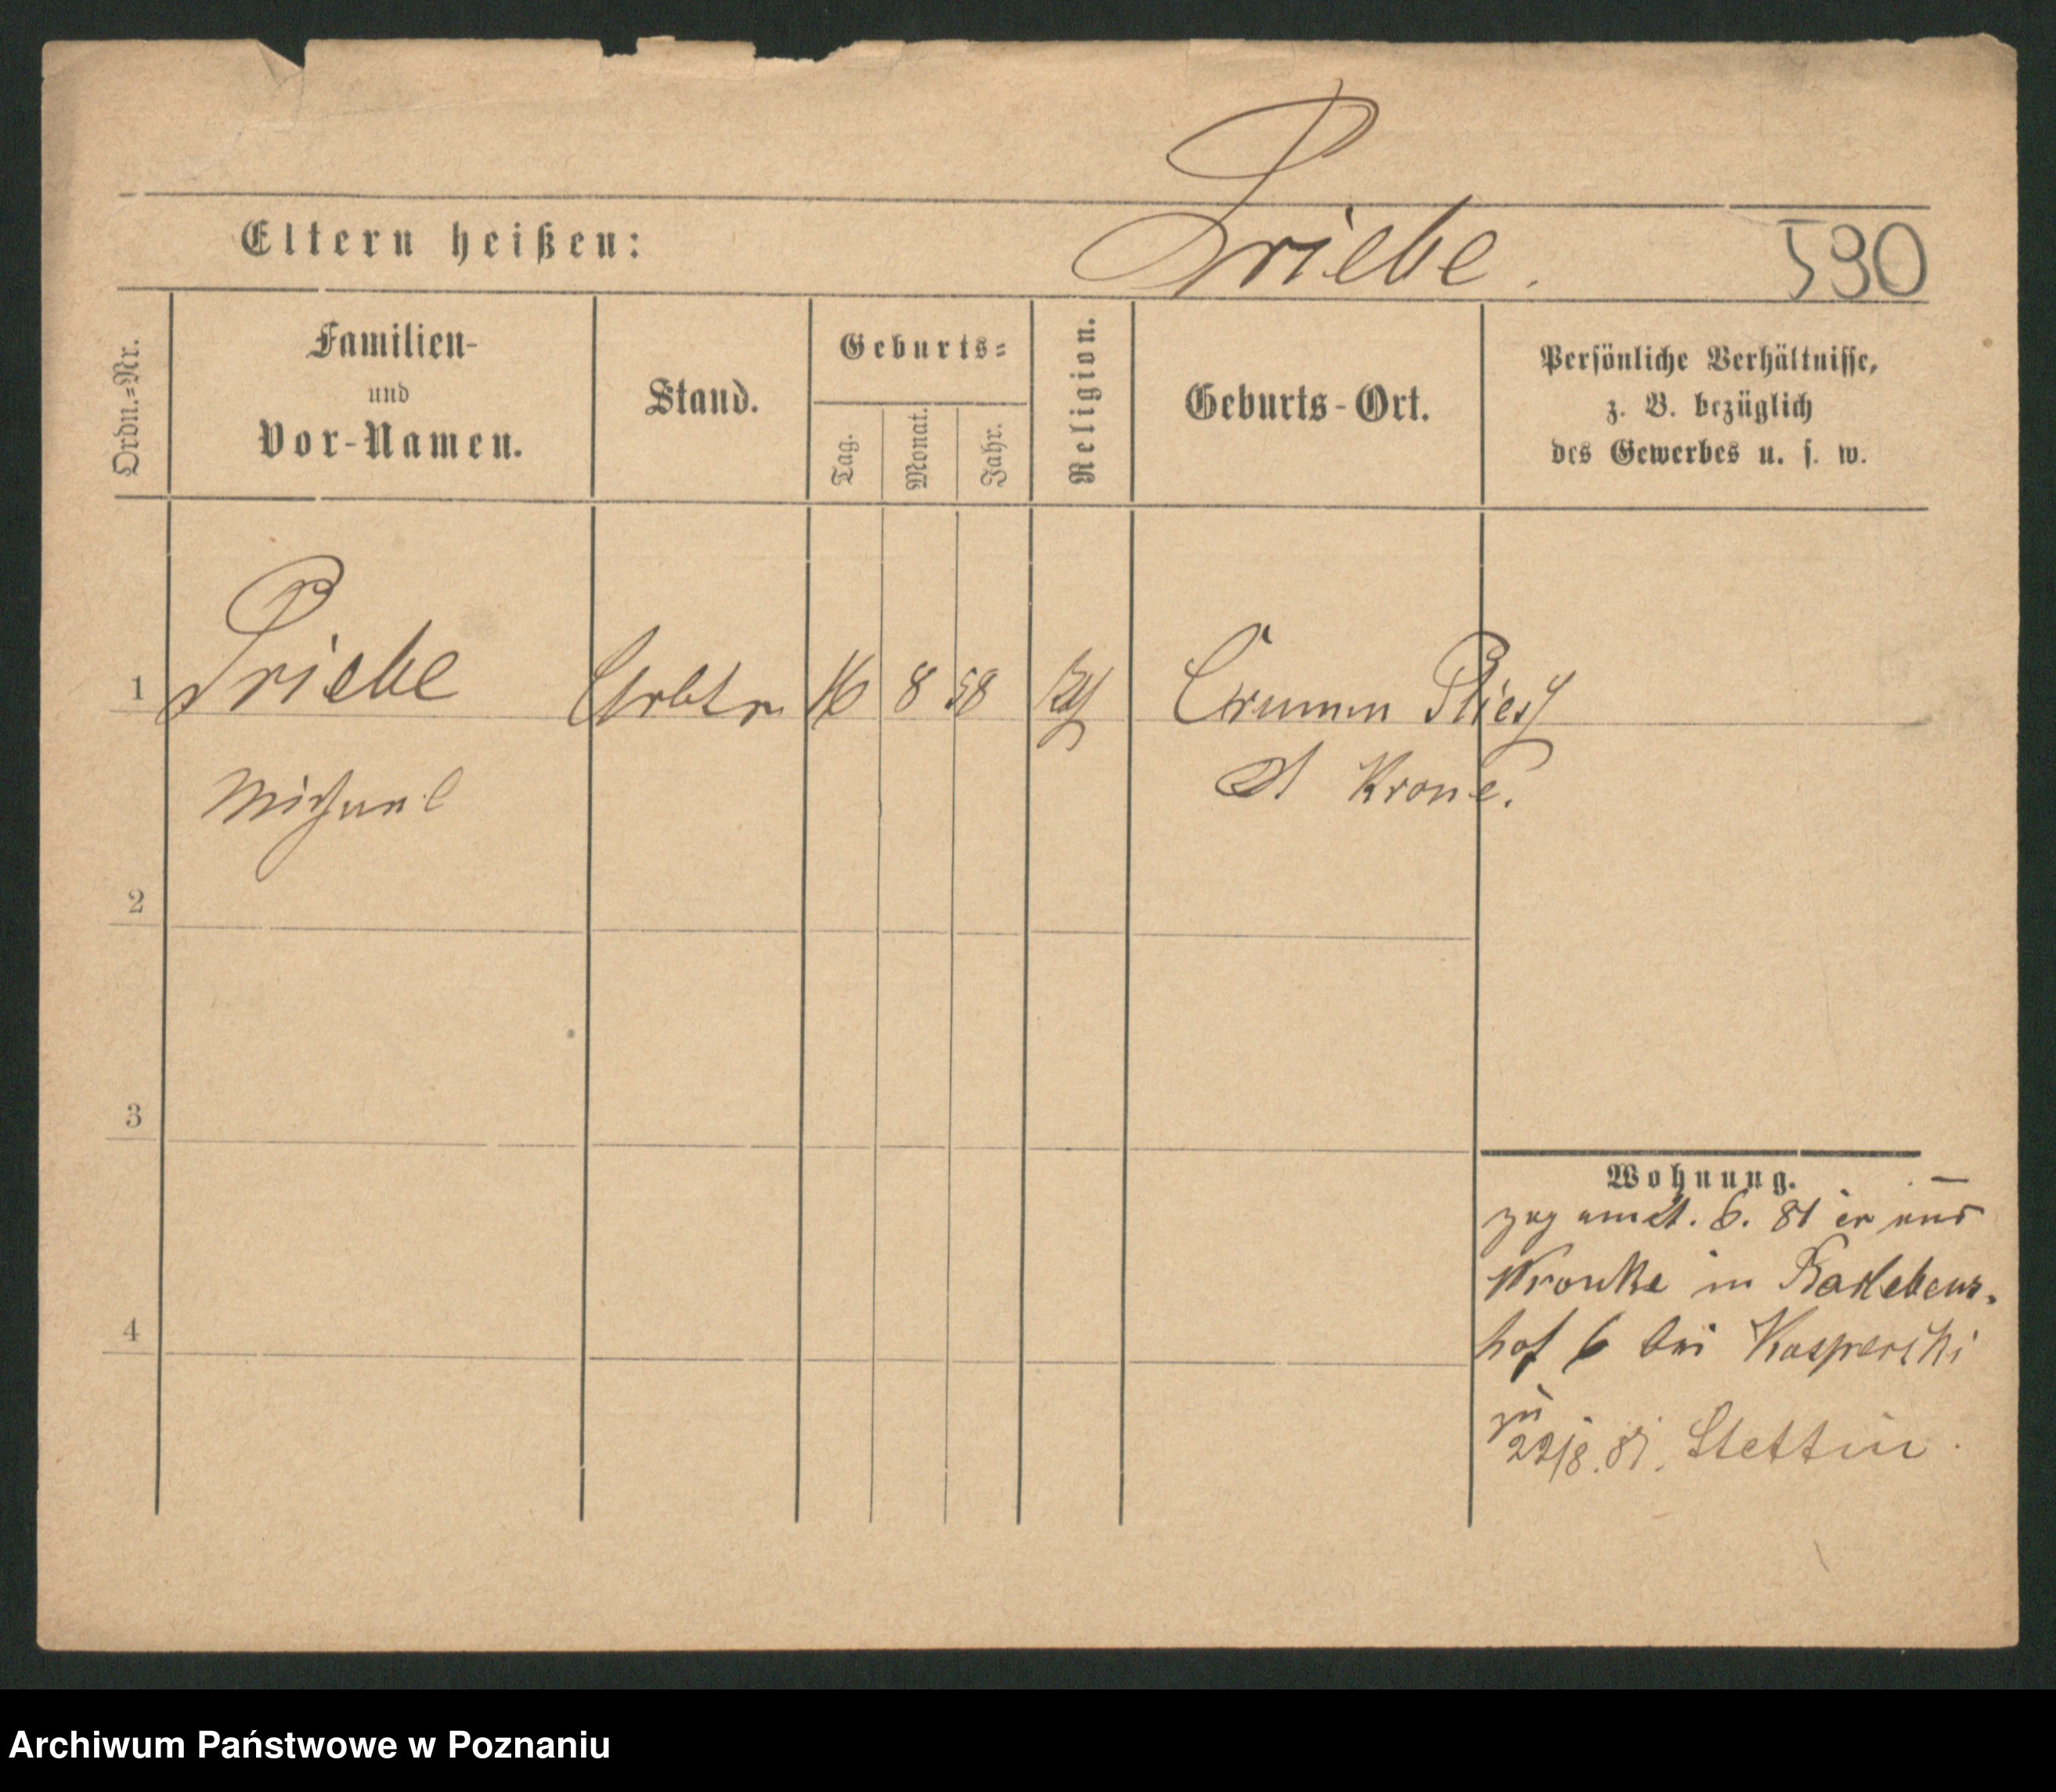 Priebe.
590
Eltern heißen:
Ordn.=Nr.
Familien-
und
Vor-Namen.
Stand.
Geburts=
Tag.
Monat.
Jahr.
Religion.
Geburts-Ort.
Persönliche Verhältnisse,
z. B. bezüglich
des Gewerbes u. s. w.
1 Priebe Arbtr 16 8 58
Michael
Krone.
2
3
4
Wohnung.
zog am 6. 81 er aus
Wronke in
hof 6 bei Kasperski
22/8. 81. Stettin.
Archiwum Państwowe w Poznaniu